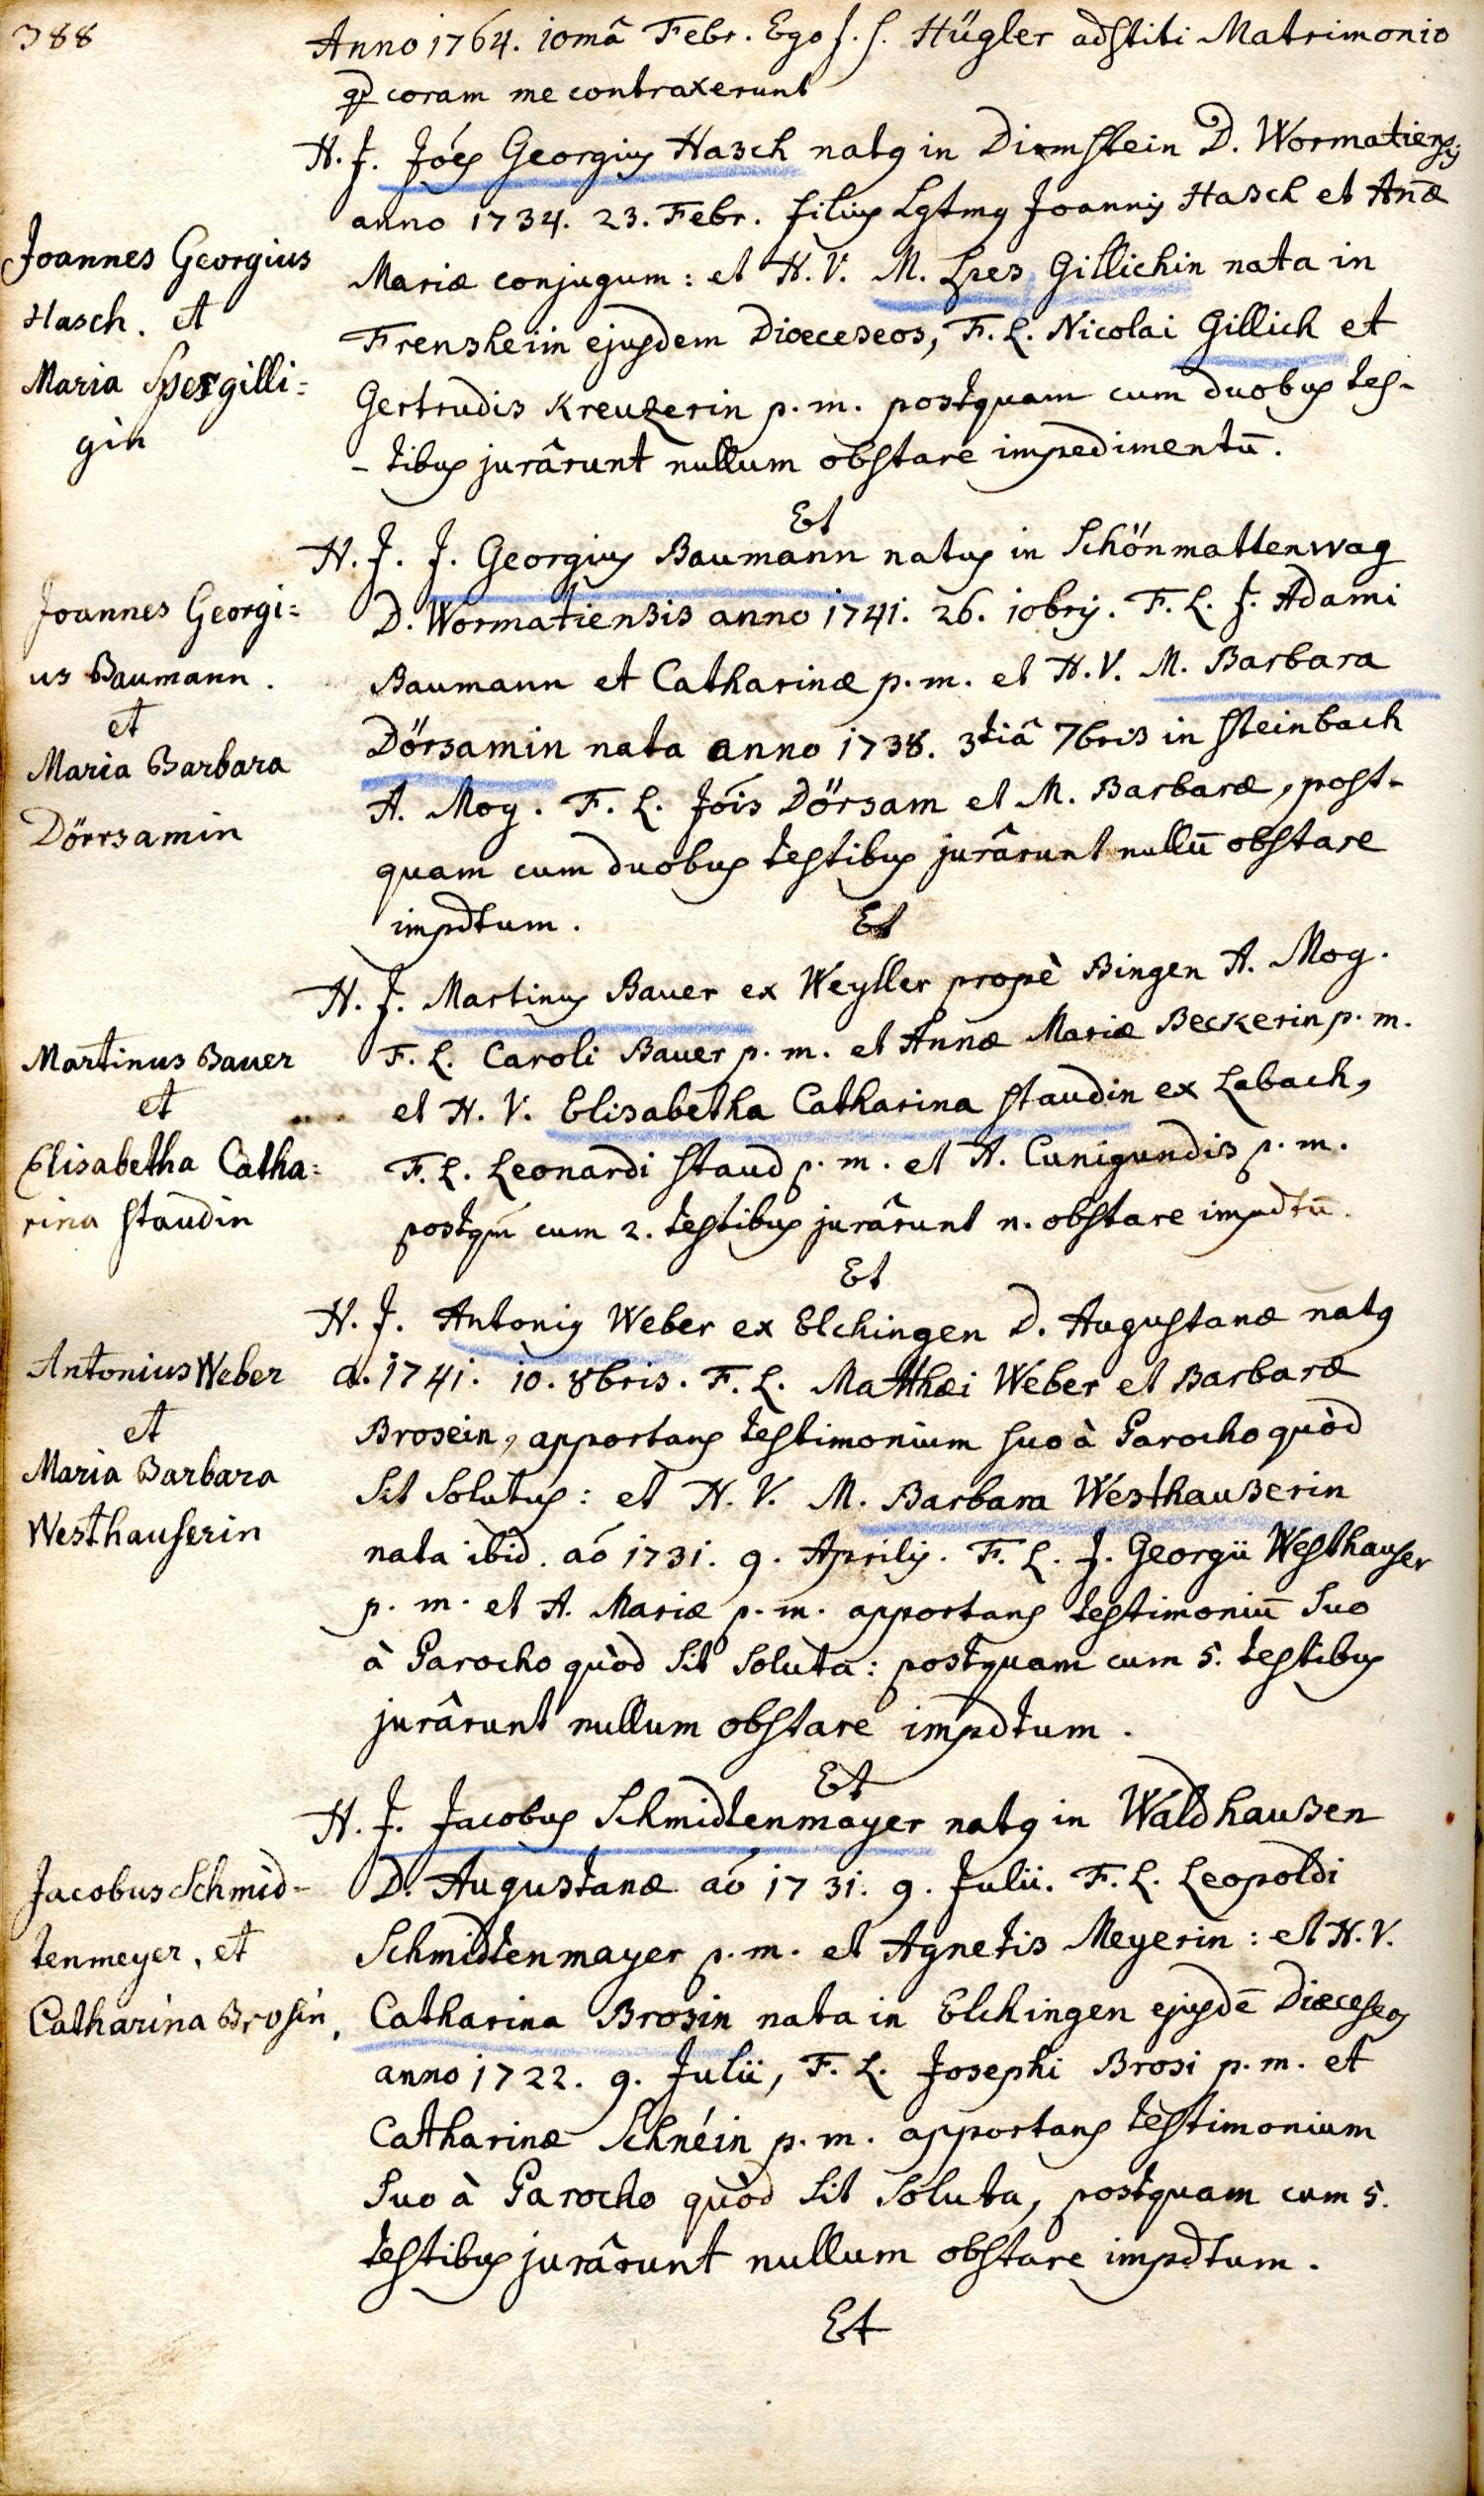 388
Anno 1764. 10mâ Febr. Ego J. S. Hügler adstiti Matrimonio
qd coram me contraxerunt
H. J. Jóes Georgius Hasch natg in Dirmstein D. Wormatiensis
anno 1734. 23. Febr. filius Lgtmg Joannis Hasch et Anæ
Mariæ conjugum: et H. V. M. Spes Gillichin nata in
Frensheim ejusdem Dioeceseos, F. L. Nicolai Gillich et
Gertrudis Kreuzerin p. m. postquam cum duobus tes-
-tibus jurârunt nullum obstare impedimentū.
Joannes Georgius
Hasch. et
Maria Spesgilli=
gin
Et
H. J. J. Georgius Baumann natus in Schönmattenwag
D. Wormatiensis anno 1741. 26. 10bris. F. L. J. Adami
Baumann et Catharinæ p. m. et H. V. M. Barbara
Dörsamin nata anno 1738. 3tiâ 7bris in Steinbach
A. Mog. F. L. Jóis Dörsam et M. Barbaræ, post-
quam cum duobus testibus jurârunt nullū obstare
impdtum.
Joannes Georgi=
us Baumann.
et
Maria Barbara
Dörrsamin
Et
H. J. Martinus Bauer ex Weyller propè Bingen A. Mog.
F. L. Caroli Bauer p. m. et Annæ Mariæ Beckerin p. m.
et H. V. Elisabetha Catharina Staudin ex Labach,
F. L. Leonardi Staud p. m. et A. Cunigundis p. m.
postqm̄ cum 2. testibus jurârunt n. obstare impdtū.
Martinus Bauer
et
Elisabetha Catha=
rina Staudin
Et
H. J. Antonius Weber ex Elchingen D. Augustanæ natg
a. 1741. 10. 8bris. F. L. Matthæi Weber et Barbaræ
Brosein, apportans testimonium suo à Parocho quòd
sit solutus: et H. V. M. Barbara Westhauserin
nata ibid. aó 1731. 9. Aprilis. F. L. J. Georgii Westhauser
p. m. et A. Mariæ p. m. apportans testimoniū suo
à Parocho quòd sit soluta: postquam cum 5. testibus
jurârunt nullum obstare impdtum.
Antonius Weber
et
Maria Barbara
Westhauserin
Et
H. J. Jacobus Schmidtenmayer natg in Waldhausen
D. Augustanæ aó 1731. 9. Julii. F. L. Leopoldi
Schmidtenmayer p. m. et Agnetis Meyerin: et H. V.
Catharina Brosin nata in Elchingen ejusdē Diæceseos
anno 1722. 9. Julii, F. L. Josephi Brosi p. m. et
Catharinæ Schnéin p. m. apportans testimonium
suo à Parocho quòd sit soluta, postquam cum 5.
testibus jurârunt nullum obstare impdtum.
Jacobus Schmid-
tenmeyer, et
Catharina Brosin,
Et